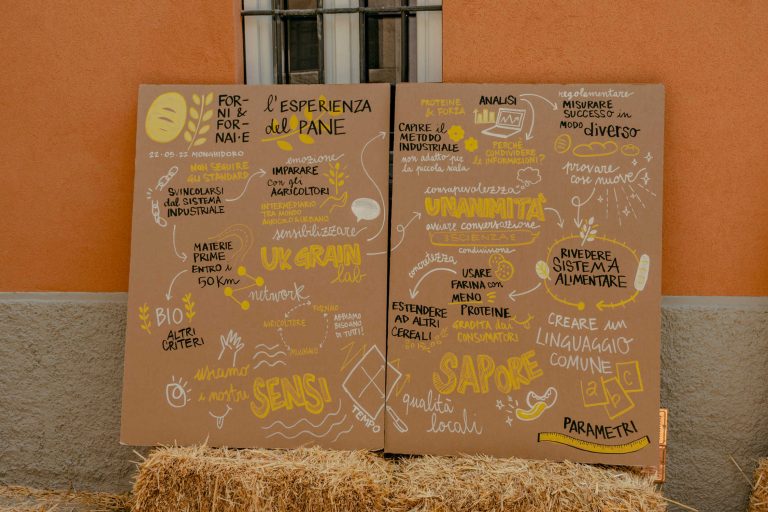 FOR-
NI &
FOR-
NAI·E
22-05-23 MONGHIDORO
L'ESPERIENZA
del PANE
NON SEGUIRE
GLI STANDARD
SVINCOLARSI
dal SISTEMA
INDUSTRIALE
MATERIE
PRIME
ENTRO i
50 Km
BIO
ALTRI
CRITERI
emozione
IMPARARE
con gli
AGRICOLTORI
INTERMEDIARIO
TRA MONDO
AGRICOLO & URBANO
sensibilizzare
UK GRAIN
lab
network
FORNAIO
AGRICOLTORE
MUGNAIO
ABBIAMO
BISOGNO
DI TUTTI!
usiamo
i nostri
SENSI
TEMPO
PROTEINE
& FORZA
CAPIRE il
METODO
INDUSTRIALE
non adatto per
la piccola scala
ANALISI
PERCHÉ
CONDIVIDERE
LE INFORMAZIONI?
regolamentare
MISURARE
SUCCESSO in
MODO diverso
provare
cose nuove
consapevolezza
UNANIMITÀ
avviare conversazione
SCIENZA E
condivisione
concretezza
USARE
FARINA con
MENO
PROTEINE
GRADITA dai
CONSUMATORI
ESTENDERE
AD ALTRI
CEREALI
RIVEDERE
SISTEMA
ALIMENTARE
SAPORE
qualità
locali
CREARE un
LINGUAGGIO
COMUNE
a b c
PARAMETRI